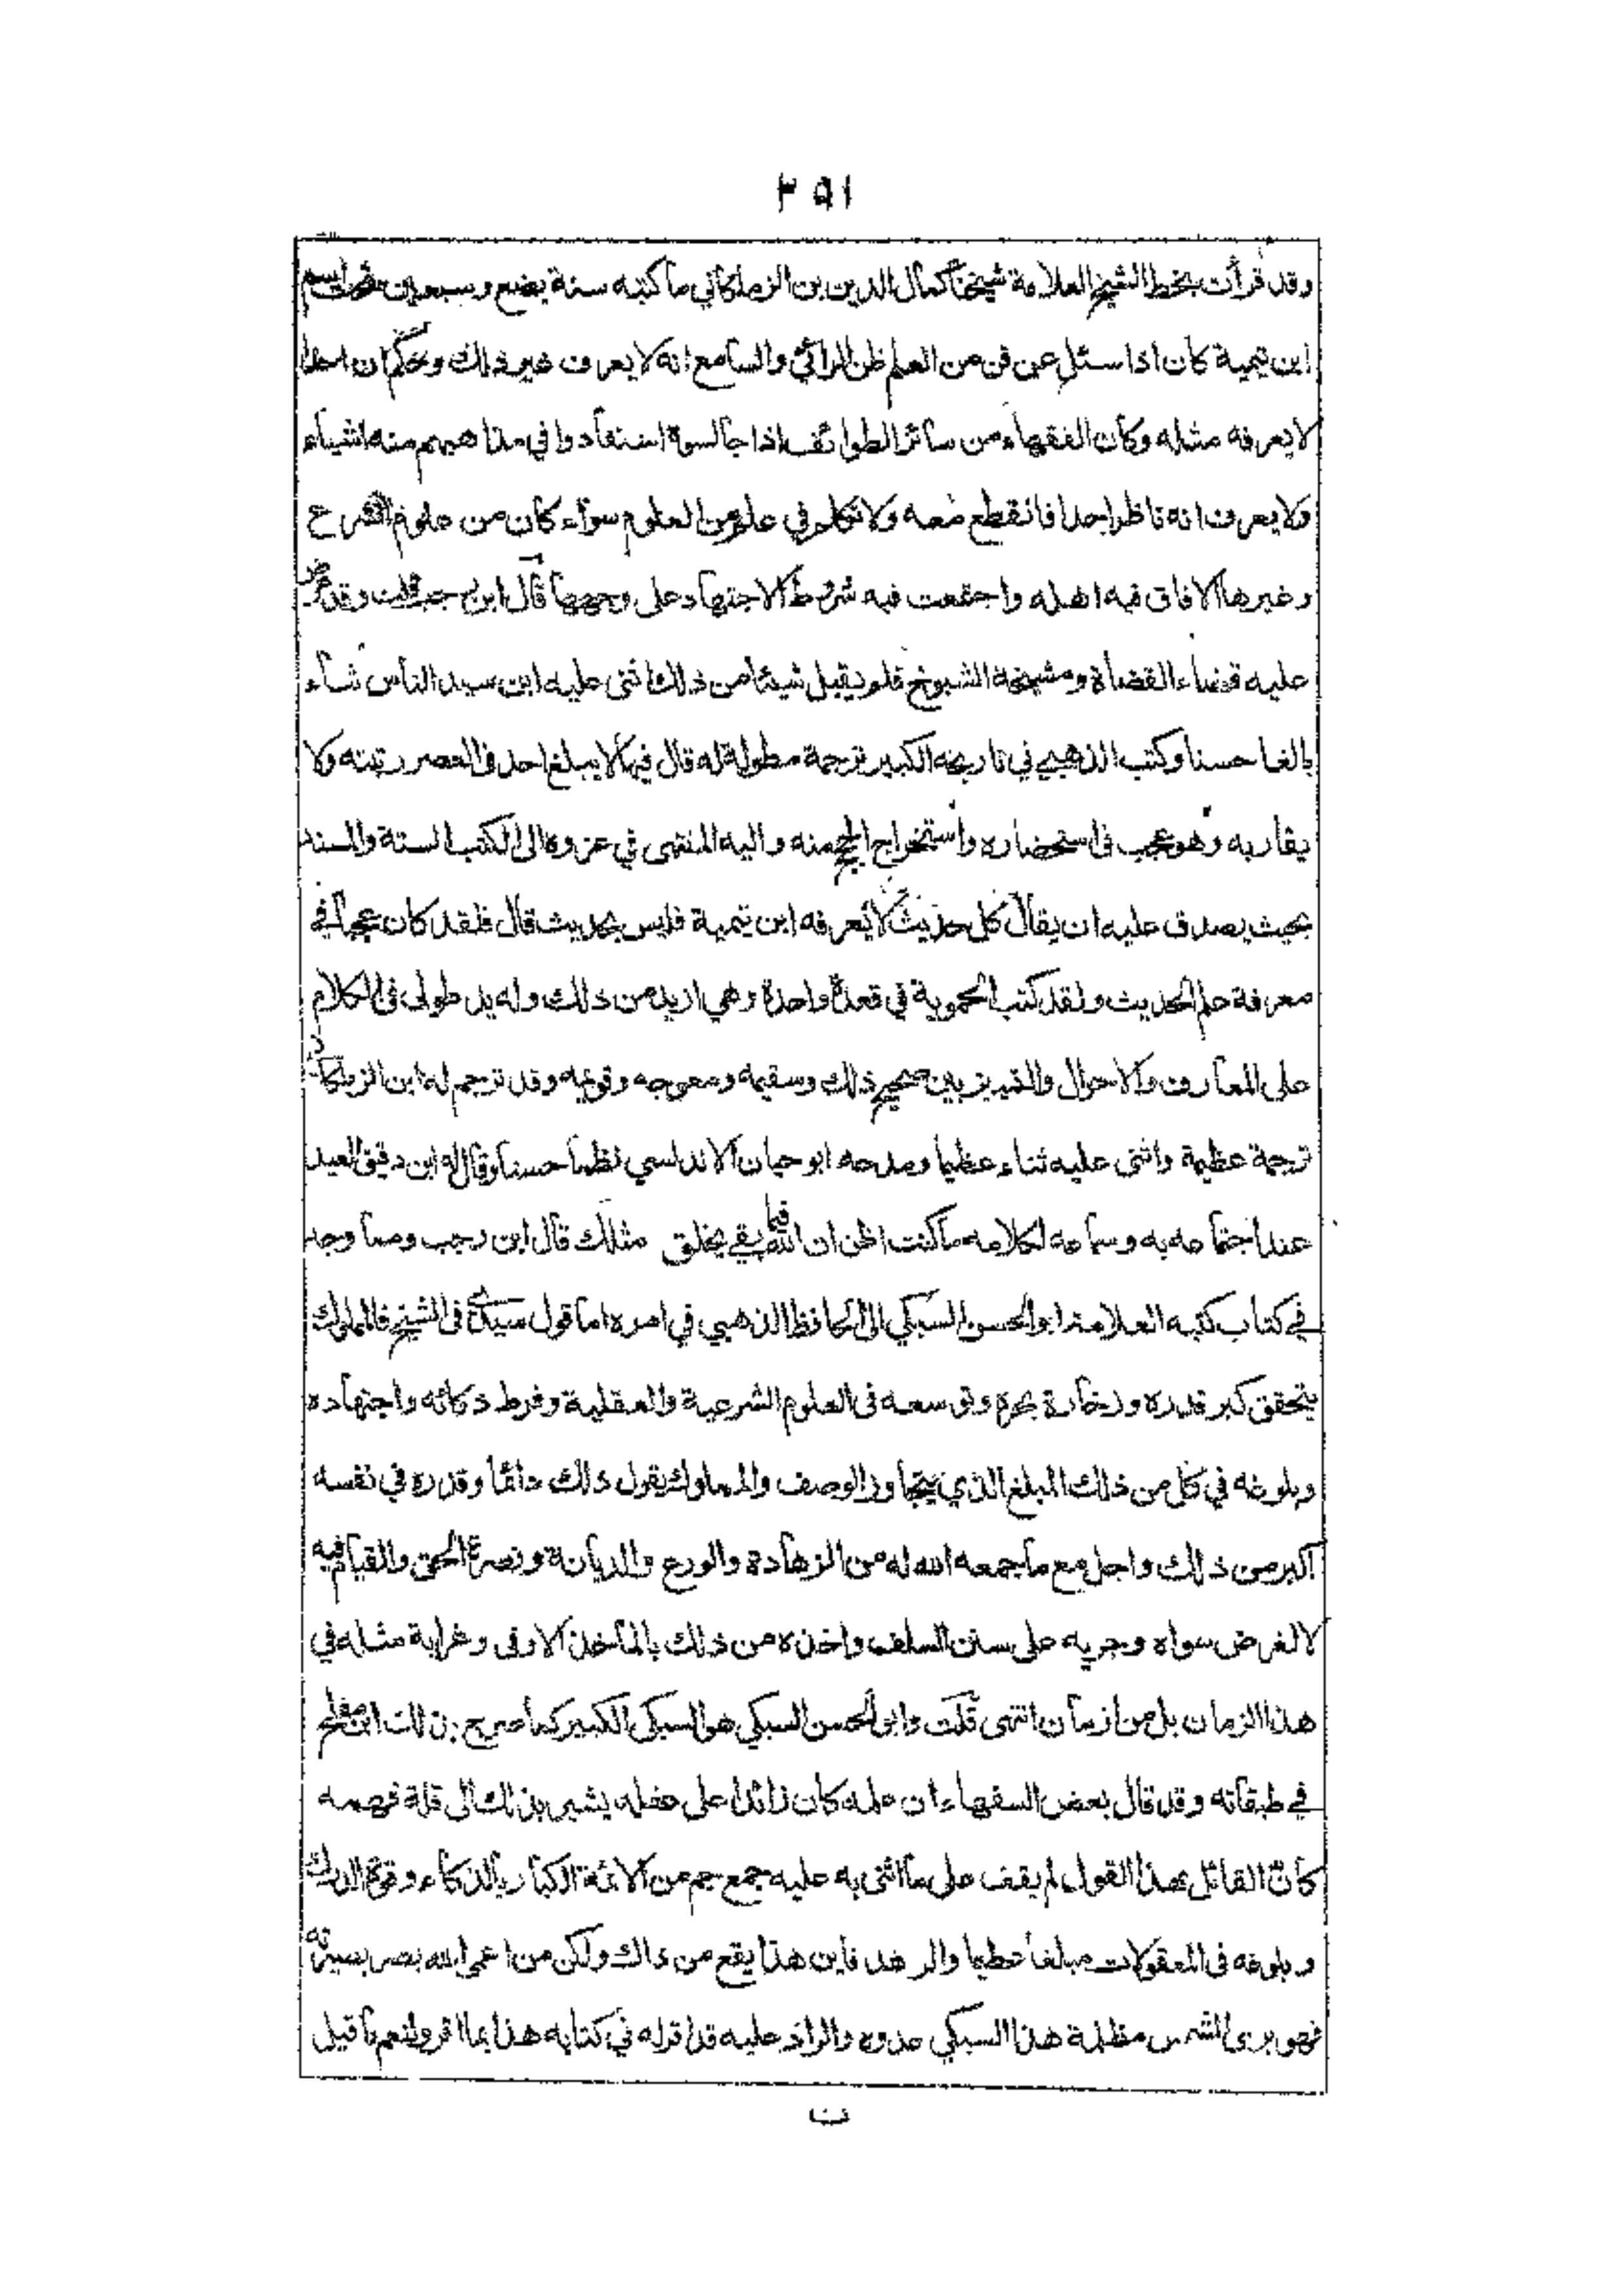 ٣٥١
وقد قرأت بخط الشيخ العلامة شيخنا كمال الدين بن الزملكاني ما كتبه سنة بضع وسبعين تحت اسم
ابن تيمية كان اذا سئل عن فن من العلم ظن الرائي والسامع انه لا يعرف غير ذلك وحكم ان احدا
لا يعرفه مثله وكان الفقهاء من سائر الطوائف اذا جالسوه استفادوا في مذاهبهم منه اشياء
ولا يعرف انه ناظر احدا فانقطع معه ولا تكلم في علم من العلوم سواء كان من علوم الشرع
وغيرها الا فاق فيه اهله واجتمعت فيه شروط الاجتهاد على وجهها قال ابن رجب قلت وقد عرض
عليه قضاء القضاة ومشيخة الشيوخ فلم يقبل شيئا من ذلك اثنى عليه ابن سيد الناس ثناء
بالغا حسنا وكتب الذهبي في تاريخه الكبير ترجمة مطولة له قال فيها لا يبلغ احد في العصر رتبته ولا
يقاربه وهو عجيب في استحضاره واستخراج الحجج منه واليه المنتهى في عزوه الى الكتب الستة والمسند
بحيث يصدق عليه ان يقال كل حديث لا يعرفه ابن تيمية فليس بحديث قال فلقد كان عجبا في
معرفة علم الحديث ولقد كتب الحموية في قعدة واحدة وهي ازيد من ذلك وله يد طولى في الكلام
على المعارف والاحوال والتمييز بين صحيح ذلك وسقيمه ومعوجه وقويمه وقد ترجم له ابن الزملكاني
ترجمة عظيمة واثنى عليه ثناء عظيما ومدحه ابو حيان الاندلسي نظما حسنا وقال له ابن دقيق العيد
عند اجتماعه به وسماعه لكلامه ما كنت اظن ان الله فيما بقي يخلق مثلك قال ابن رجب ومما وجد
في كتاب كتبه العلامة ابو الحسن السبكي الى الحافظ الذهبي في امره اما قول سيدي في الشيخ فالمملوك
يتحقق كبر قدره وزخارة بحره وتوسعه في العلوم الشرعية والعقلية وفرط ذكائه واجتهاده
وبلوغه في كل من ذلك المبلغ الذي يتجاوز الوصف والمملوك يقول ذلك دائما وقدره في نفسه
اكبر من ذلك واجل مع ما جمعه الله له من الزهادة والورع والديانة ونصرة الحق والقيام فيه
لا لغرض سواه وجريه على سنن السلف واخذه من ذلك بالمأخذ الاوفى وغرابة مثله في
هذا الزمان بل من ازمان انتهى قلت وابو الحسن السبكي هو السبكي الكبير كما صرح بذلك ابن مفلح
في طبقاته وقد قال بعض السفهاء ان علمه كان زائدا على عقله يشير بذلك الى قلة فهمه
كان القائل بهذا القول لم يقف على ما اثنى به عليه جمع جم من الائمة الكبار بالذكاء وقوة الدرك
وبلوغه في المعقولات مبلغا عظيما والزهد فاين هذا يقع من ذاك ولكن من اعمى الله بصر بصيرته
فهو يرى الشمس مظلمة هذا السبكي عدوه والراد عليه قد اقر له في كتابه هذا بما اقر ولنعم ما قيل